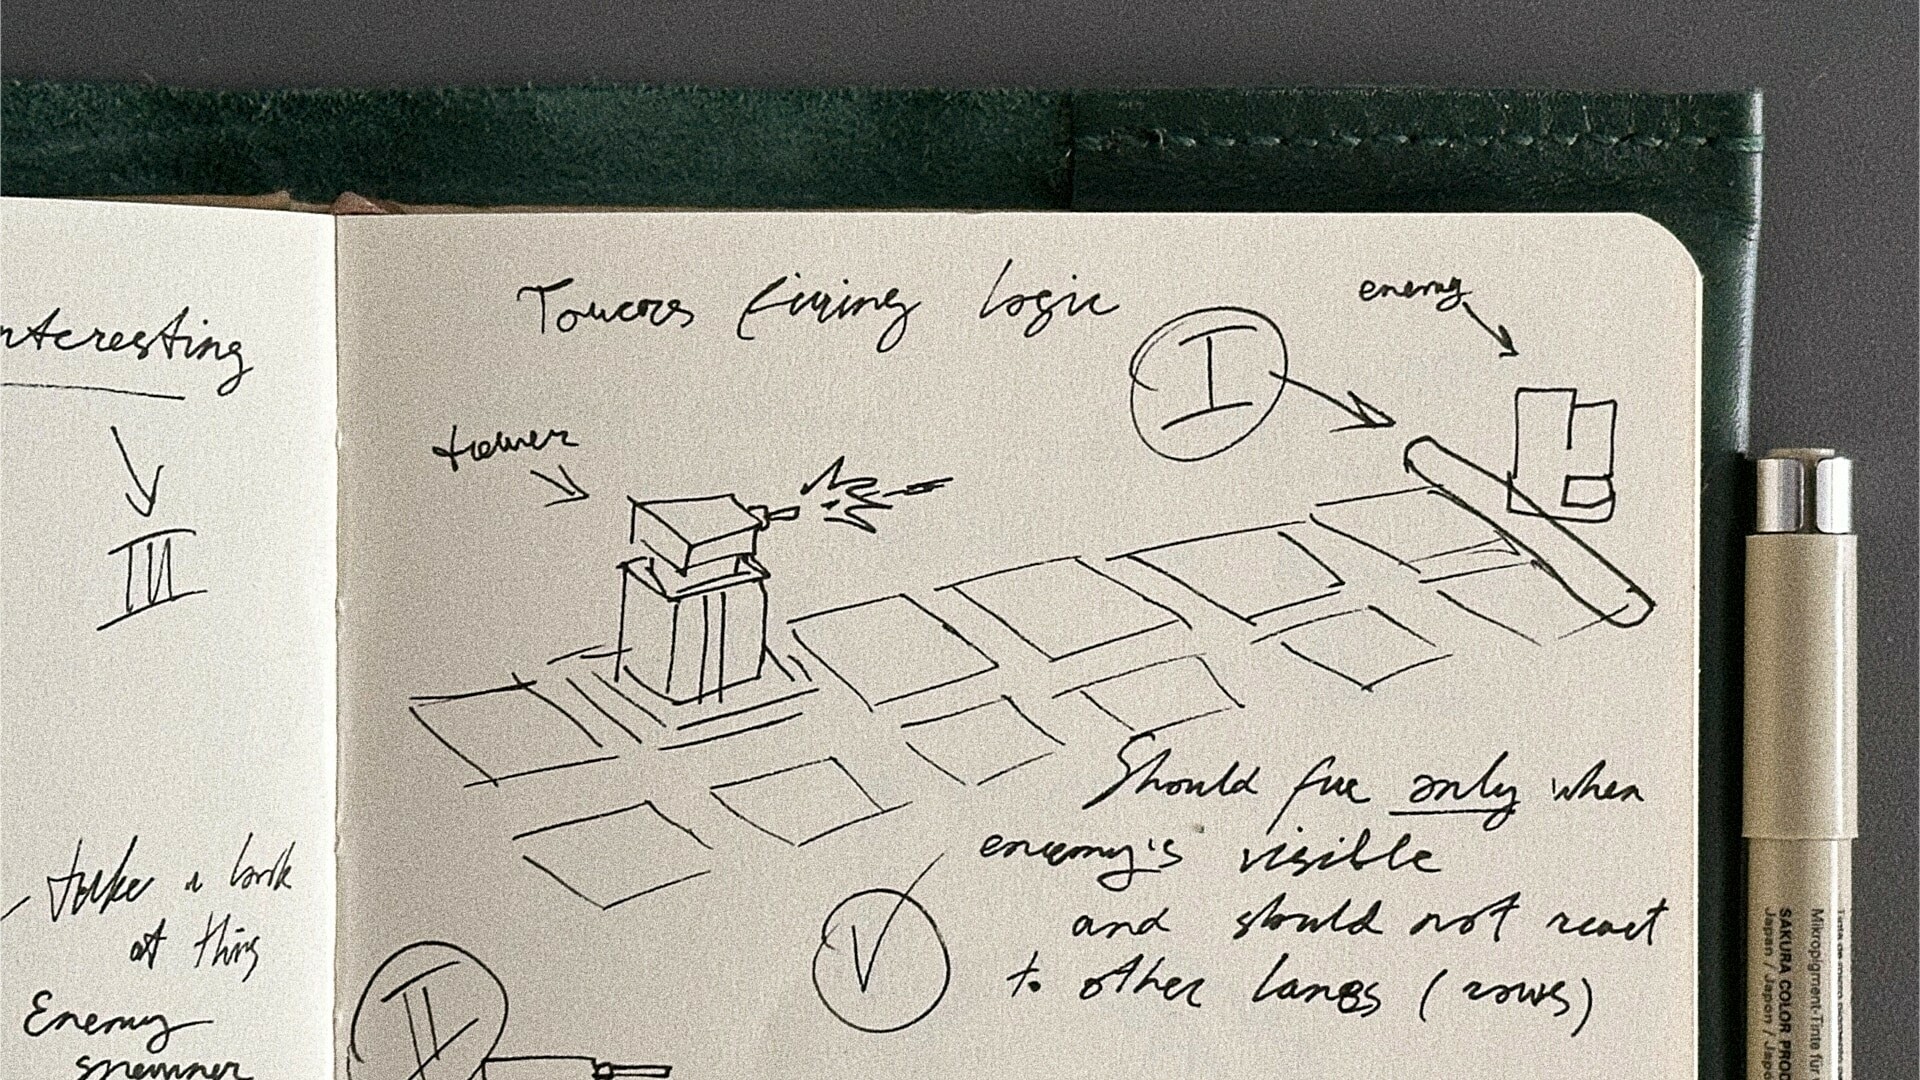 interesting
III
take a look
at this
Enemy
spawner
Towers firing logic
I
enemy
tower
Should fire only when
enemy's visible
and should not react
to other lanes (rows)
V
II
Mikropigment-Tinte für
SAKURA COLOR PROD
Japan / Japon / Japa